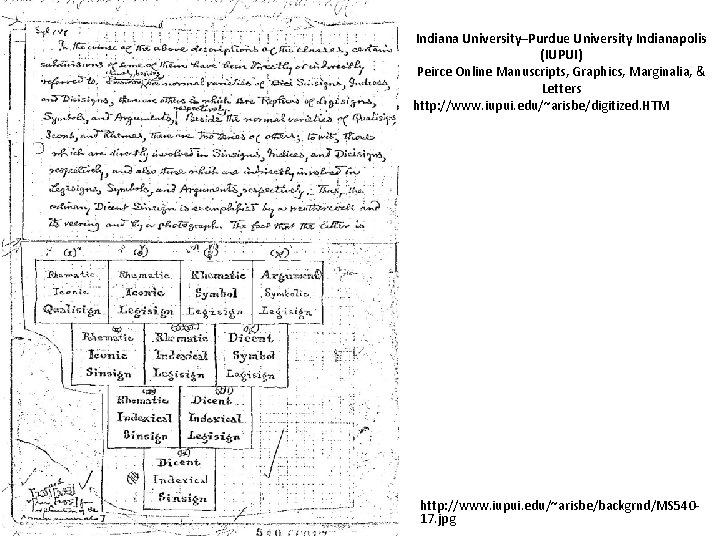 In the course of the above descriptions of the classes, certain
subdivisions of some of them have been directly or indirectly
referred to. Namely, besides the normal varieties of Sinsigns, Indices,
and Dicisigns, there are others which are Replicas of Legisigns,
Symbols, and Arguments, respectively. Beside the normal varieties of Qualisigns,
Icons, and Rhemes, there are two series of others; to wit, those
which are directly involved in Sinsigns, Indices, and Dicisigns,
respectively, and also those which are indirectly involved in
Legisigns, Symbols, and Arguments, respectively. Thus, the
ordinary Dicent Sinsign is exemplified by a weathercock and
its veering and by a photograph. The fact that the latter is
Rhematic
Iconic
Qualisign
Rhematic
Iconic
Legisign
Rhematic
Symbol
Legisign
Argument
Symbolic
Legisign
Rhematic
Iconic
Sinsign
Rhematic
Indexical
Legisign
Dicent
Symbol
Legisign
Rhematic
Indexical
Sinsign
Dicent
Indexical
Legisign
Dicent
Indexical
Sinsign
Indiana University–Purdue University Indianapolis
(IUPUI)
Peirce Online Manuscripts, Graphics, Marginalia, &
Letters
http://www.iupui.edu/~arisbe/digitized.HTM
http://www.iupui.edu/~arisbe/backgrnd/MS540-
17.jpg